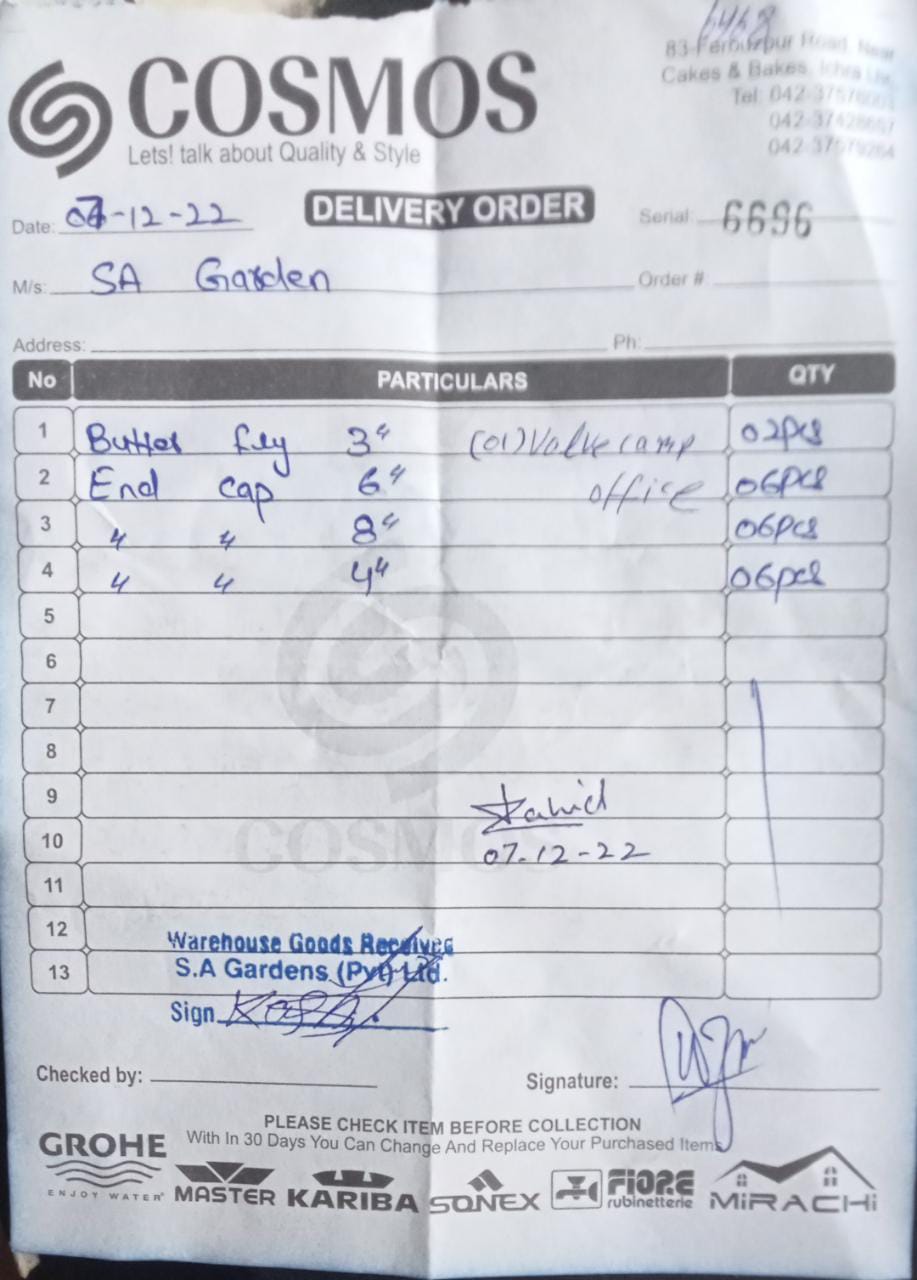 6468
COSMOS
Lets! talk about Quality & Style
83-Ferouzpur Road, Near
Cakes & Bakes, Ichra
Tel: 042-
042-
042-
Date: 07-12-22
DELIVERY ORDER
Serial: 6696
M/s: SA Garden
Order #:
Address:
Ph:
No PARTICULARS QTY
1 Butter fly 3" (01) Valve camp 02pcs
2 End cap 6" office 06pcs
3 " " 8" 06pcs
4 " " 4" 06pcs
5
6
7
8
9
10
07-12-22
11
12
13
Warehouse Goods Received
S.A Gardens (Pvt) Ltd.
Sign
Checked by:
Signature:
PLEASE CHECK ITEM BEFORE COLLECTION
With In 30 Days You Can Change And Replace Your Purchased Items
GROHE
ENJOY WATER®
MASTER
KARIBA
SONEX
FIORE
rubinetterie
MiRACHi
COSMOS